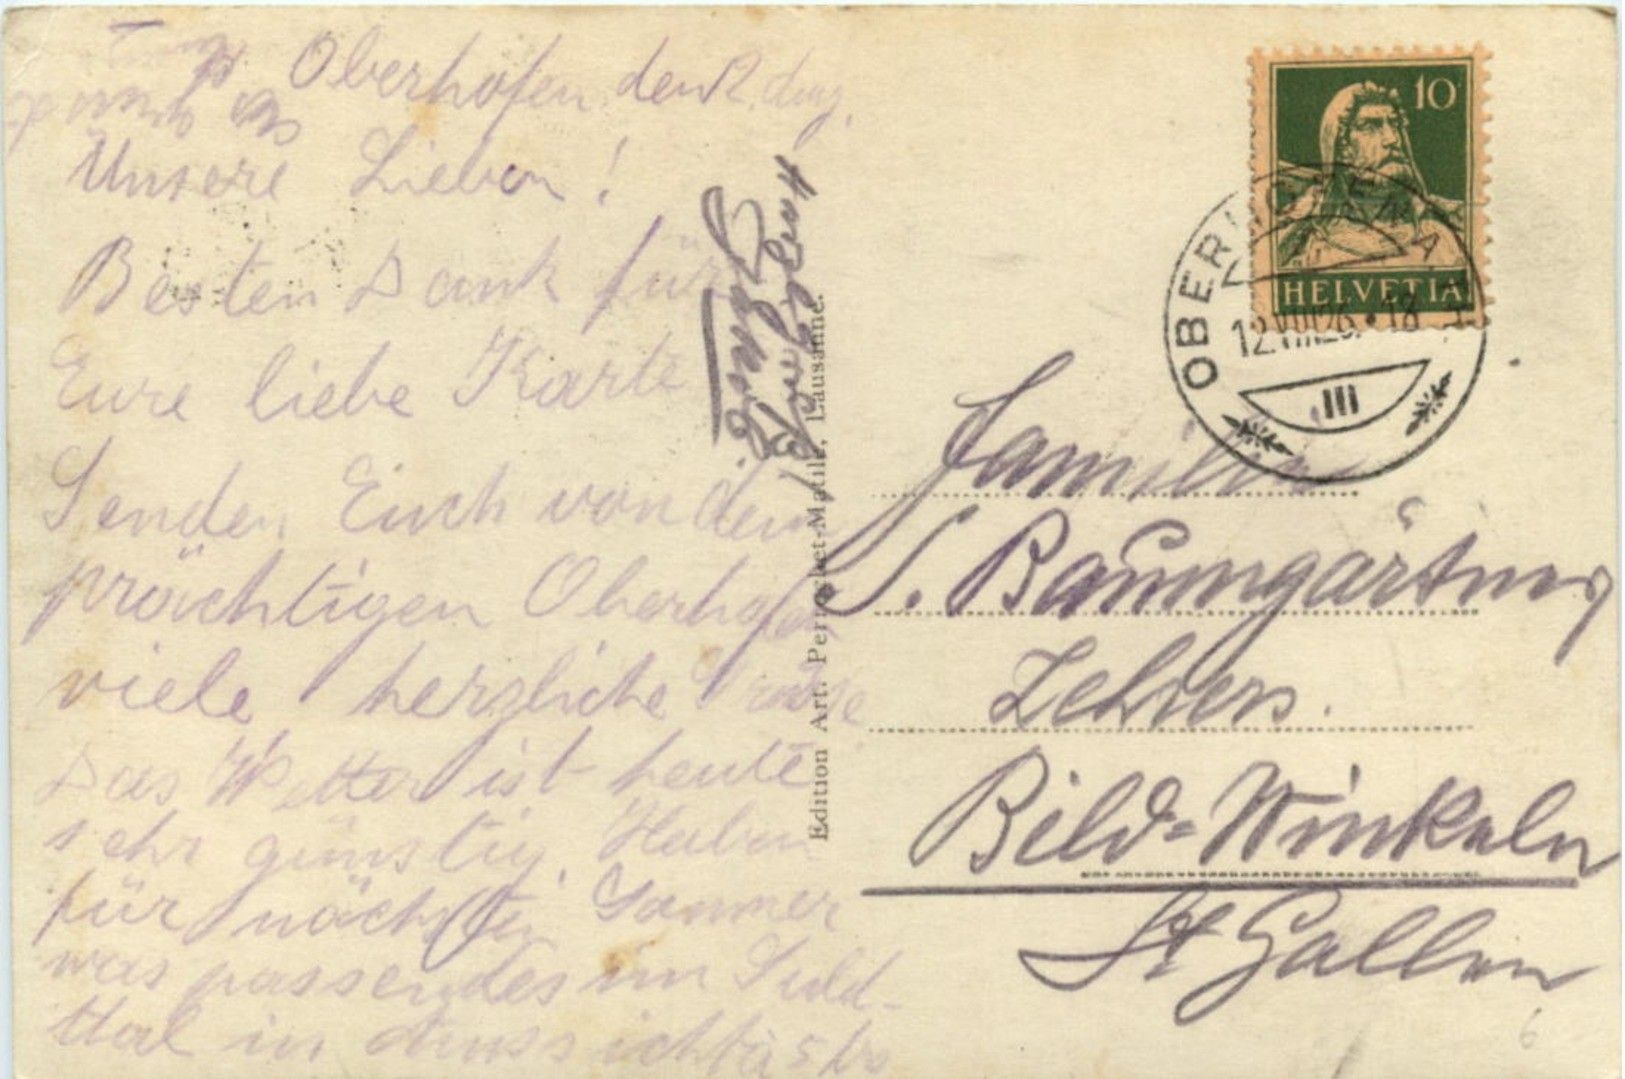 Oberhofen den 12. Aug.
Unsere Lieben!
Besten Dank für
Eure liebe Karte
Senden Euch von dem
prächtigen Oberhofen
viele herzliche Grüsse
Das Wetter ist heute
sehr günstig. Haben
für nächsten Sommer
was passendes im Suld-
ttal in Aussicht
Edition Art. Perrochet-Matile, Lausanne.
10
HELVETIA
12.VIII.26.18
III
Familie
J. Baumgärtner
Lehrers.
Bild-Winkeln
St Gallen
6